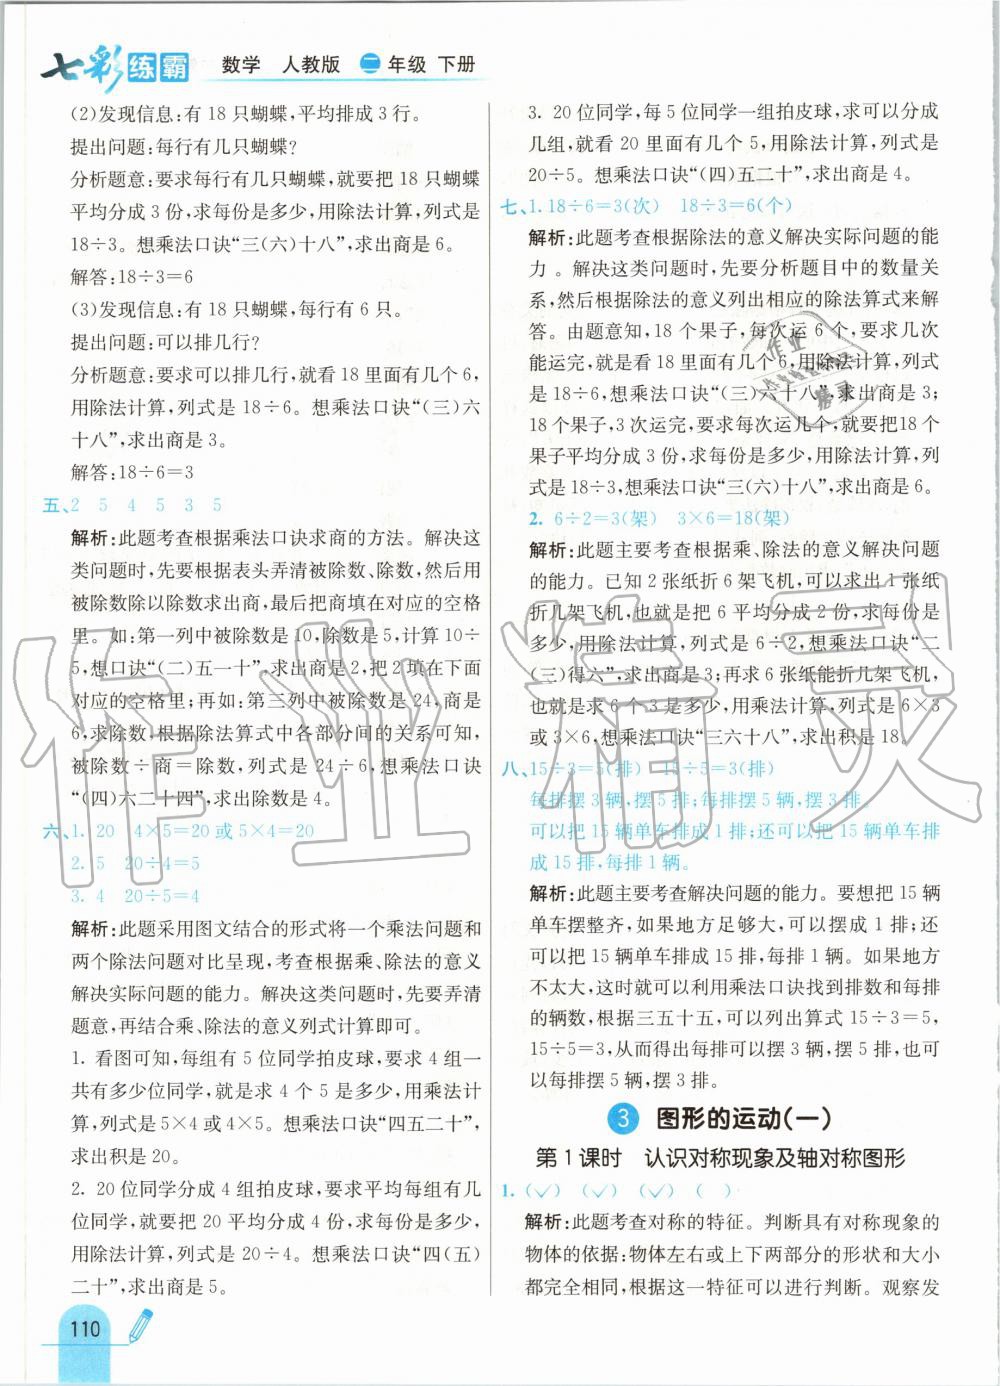 七彩练霸 数学 人教版 二年级 下册
(2)发现信息:有 18 只蝴蝶,平均排成 3 行。
提出问题:每行有几只蝴蝶?
分析题意:要求每行有几只蝴蝶,就要把 18 只蝴蝶
平均分成 3 份,求每份是多少,用除法计算,列式是
18÷3。想乘法口诀“三(六)十八”,求出商是 6。
解答:18÷3=6
(3)发现信息:有 18 只蝴蝶,每行有 6 只。
提出问题:可以排几行?
分析题意:要求可以排几行,就看 18 里面有几个 6,
用除法计算,列式是 18÷6。想乘法口诀“(三)六
十八”,求出商是 3。
解答:18÷6=3
五、2 5 4 5 3 5
解析:此题考查根据乘法口诀求商的方法。解决这
类问题时,先要根据表头弄清被除数、除数,然后用
被除数除以除数求出商,最后把商填在对应的空格
里。如:第一列中被除数是 10,除数是 5,计算 10÷
5,想口诀“(二)五一十”,求出商是 2,把 2 填在下面
对应的空格里;再如:第三列中被除数是 24,商是
6,求除数,根据除法算式中各部分间的关系可知,
被除数÷商=除数,列式是 24÷6,想乘法口诀
“(四)六二十四”,求出除数是 4。
六、1. 20 4×5=20 或 5×4=20
2. 5 20÷4=5
3. 4 20÷5=4
解析:此题采用图文结合的形式将一个乘法问题和
两个除法问题对比呈现,考查根据乘、除法的意义
解决实际问题的能力。解决这类问题时,先要弄清
题意,再结合乘、除法的意义列式计算即可。
1. 看图可知,每组有 5 位同学拍皮球,要求 4 组一
共有多少位同学,就是求 4 个 5 是多少,用乘法计
算,列式是 5×4 或 4×5。想乘法口诀“四五二十”,
求出积是 20。
2. 20 位同学分成 4 组拍皮球,要求平均每组有几
位,就要把 20 平均分成 4 份,求每份是多少,用除
法计算,列式是 20÷4。想乘法口诀“四(五)
二十”,求出商是 5。
3. 20 位同学,每 5 位同学一组拍皮球,求可以分成
几组,就看 20 里面有几个 5,用除法计算,列式是
20÷5。想乘法口诀“(四)五二十”,求出商是 4。
七、1. 18÷6=3(次) 18÷3=6(个)
解析:此题考查根据除法的意义解决实际问题的能
力。解决这类问题时,先要分析题目中的数量关
系,然后根据除法的意义列出相应的除法算式来解
答。由题意知,18 个果子,每次运 6 个,要求几次
能运完,就是看 18 里面有几个 6,用除法计算,列式
是 18÷6,想乘法口诀“(三)六十八”,求出商是 3;
18 个果子,3 次运完,要求每次运几个,就要把18 个
果子平均分成 3 份,求每份是多少,用除法计算,列
式是 18÷3,想乘法口诀“三(六)十八”,求出商是 6。
2. 6÷2=3(架) 3×6=18(架)
解析:此题主要考查根据乘、除法的意义解决问题
的能力。已知 2 张纸折 6 架飞机,可以求出 1 张纸
折几架飞机,也就是把 6 平均分成 2 份,求每份是
多少,用除法计算,列式是 6÷2,想乘法口诀“二
(三)得六”,求出商是 3;再求 6 张纸能折几架飞机,
也就是求 6 个 3 是多少,用乘法计算,列式是 6×3
或 3×6,想乘法口诀“三六十八”,求出积是 18。
八、15÷3=5(排) 15÷5=3(排)
每排摆 3 辆,摆 5 排;每排摆 5 辆,摆 3 排。
可以把 15 辆单车摆成 1 排;还可以把 15 辆单车摆
成 15 排,每排 1 辆。
解析:此题主要考查解决问题的能力。要想把 15 辆
单车摆整齐,如果地方足够大,可以摆成 1 排;还可
以把 15 辆单车摆成 15 排,每排 1 辆。如果地方
不太大,这时就可以利用乘法口诀找到排数和每排
的辆数,根据三五十五,可以列出算式 15÷3=5,
15÷5=3,从而得出每排可以摆 3 辆,摆 5 排,也可
以每排摆 5 辆,摆 3 排。
3 图形的运动(一)
第 1 课时 认识对称现象及轴对称图形
1. (✓) (✓) (✓) ( )
解析:此题考查对称的特征。判断具有对称现象的
物体的依据:物体左右或上下两部分的形状和大小
都完全相同,根据这一特征可以进行判断。观察发
110
作业精灵